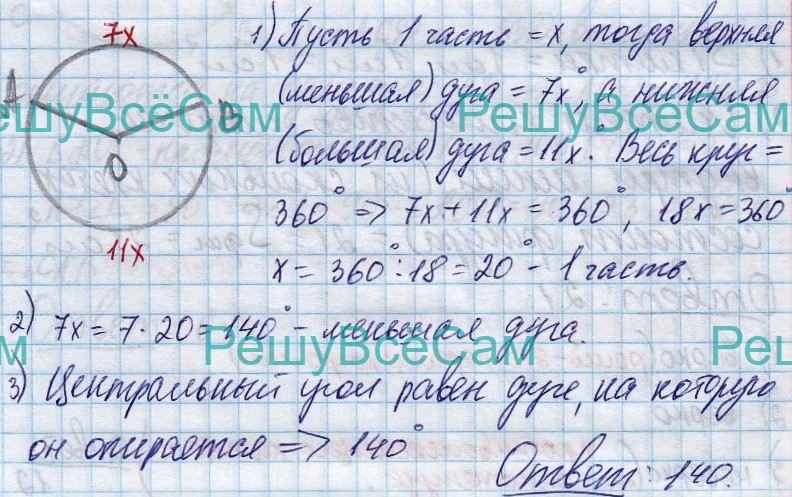 7x
A
B
O
11x
1) Пусть 1 часть = x, тогда верхняя
(меньшая) дуга = 7x°, а нижняя
(большая) дуга = 11x°. Весь круг =
360° => 7x + 11x = 360°, 18x = 360°
x = 360° : 18 = 20° - 1 часть.
2) 7x = 7 · 20 = 140° - меньшая дуга.
3) Центральный угол равен дуге, на которую
он опирается => 140°
Ответ: 140.
РешуВсёСам
РешуВсёСам
РешуВсёСам